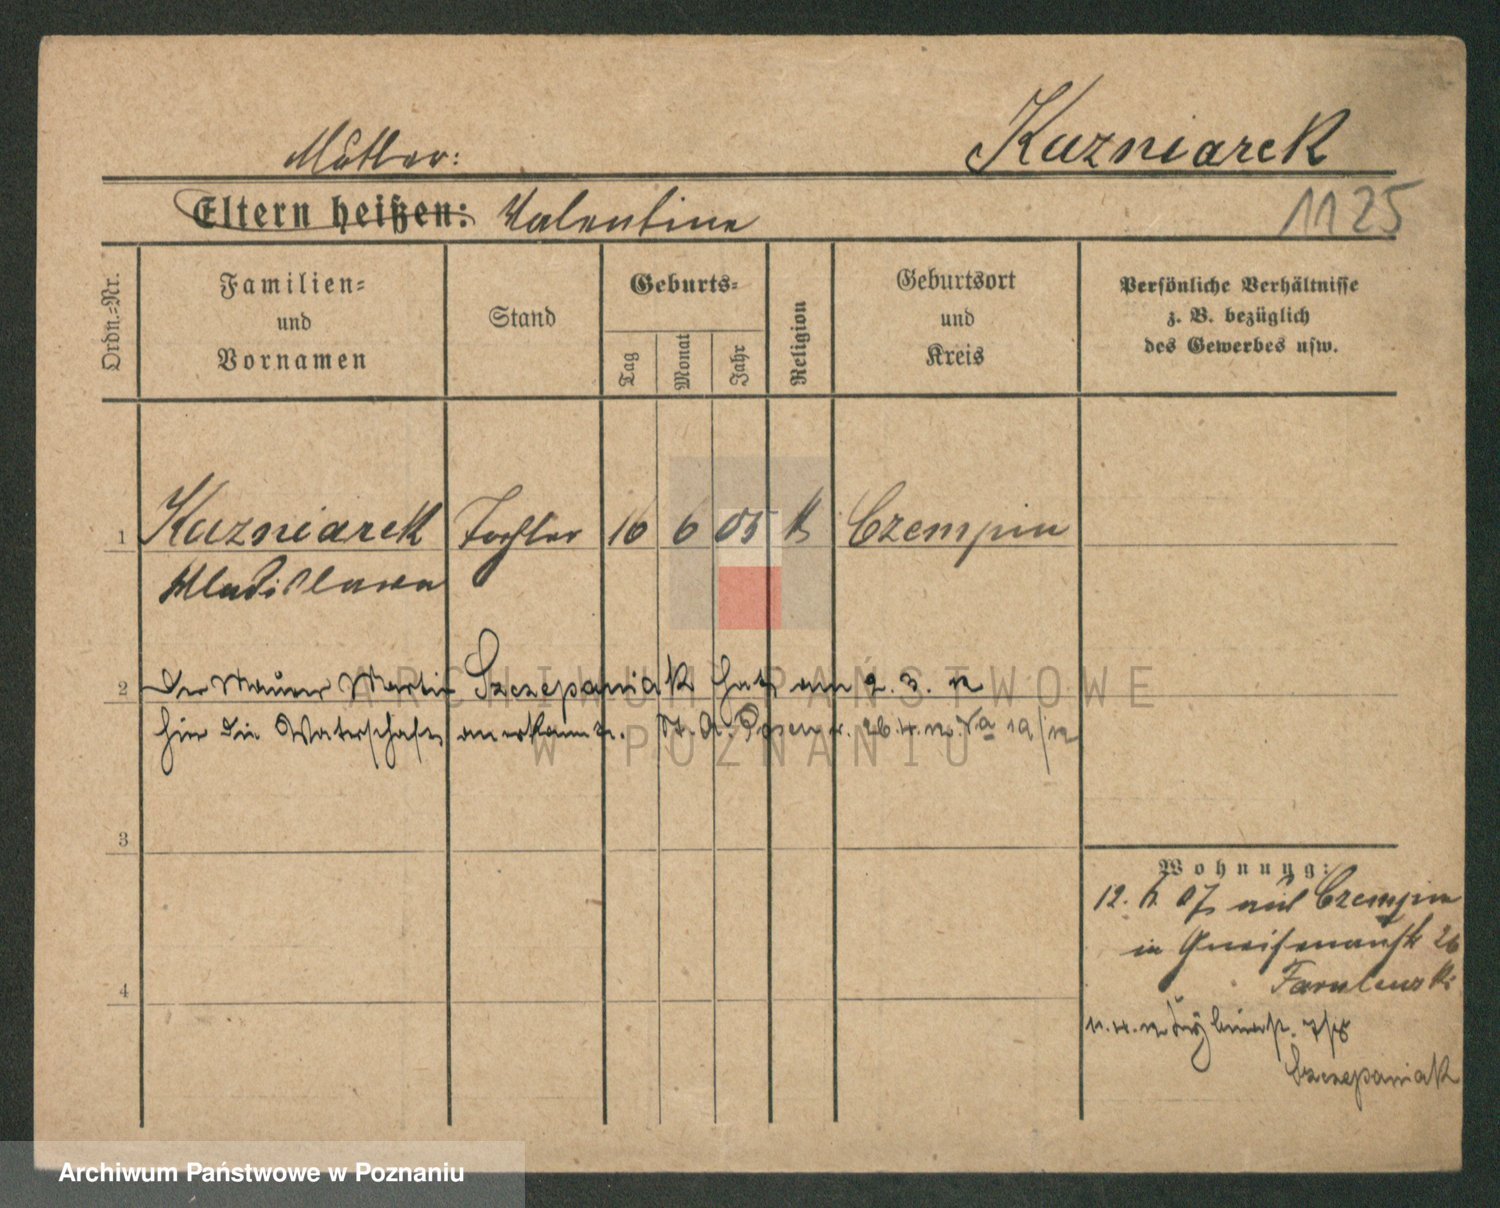 Kuzniarek
Mutter:
Eltern heißen: Valentine
1125
Ordn.=Nr.
Familien=
und
Vornamen
Stand
Geburts=
Tag
Monat
Jahr
Religion
Geburtsort
und
Kreis
Persönliche Verhältnisse
z. B. bezüglich
des Gewerbes usw.
1 Kuzniarek Tochter 16 6 05 k Czempin
Wladislawa
2 Der Maurer Martin Szczepaniak hat am 2. 3. 12
hier die Vaterschaft anerkannt. St. A. Posen v. 26.4.12.
3
4
Wohnung:
12. 6. 07 aus Czempin
in Gneisenaustr 26
11.4.12
Szczepaniak
ARCHIWUM PAŃSTWOWE
W POZNANIU
Archiwum Państwowe w Poznaniu